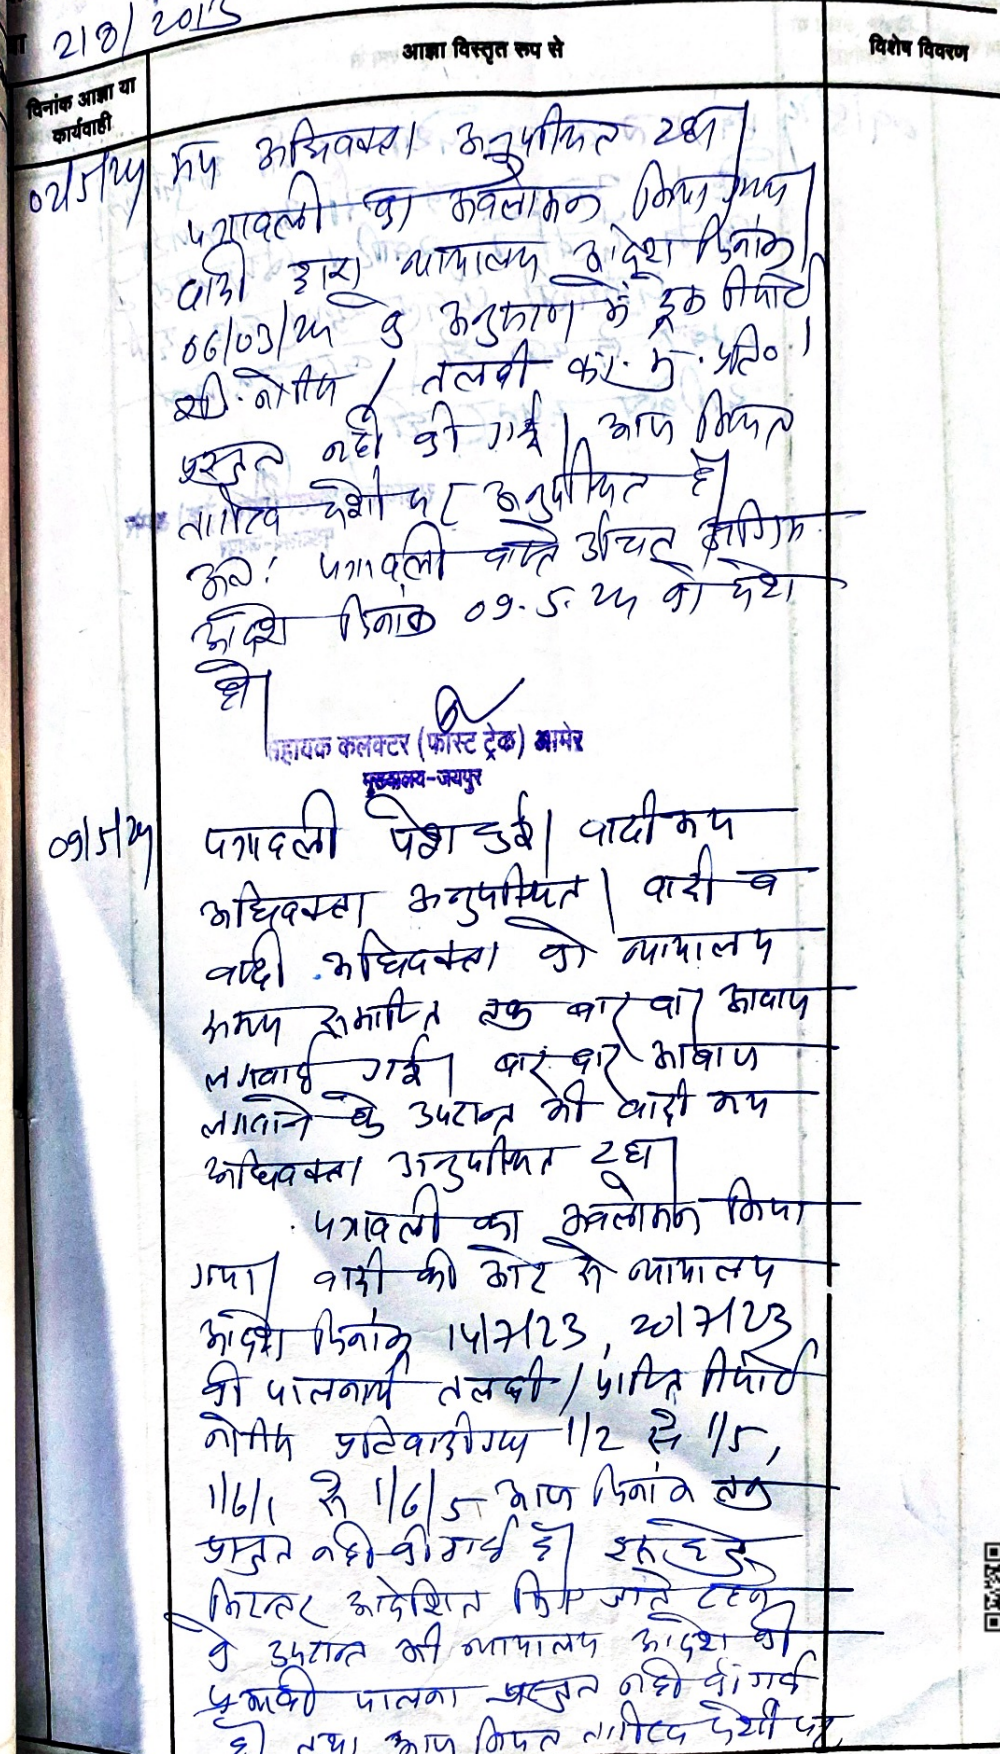 218/2015
आज्ञा विस्तृत रूप से
विशेष विवरण
दिनांक आज्ञा या
कार्यवाही
02/5/24 मय अधिवक्ता अनुपस्थित रहा।
पत्रावली का अवलोकन किया गया।
वादी द्वारा न्यायालय आदेश दिनांक
06/03/24 के अनुसरण में ट्रैक रिपोर्ट
नोटिस / तलवी प्रति०
प्रस्तुत नही की गई। आज नियत
तारीख पेशी पर अनुपस्थित है।
अतः पत्रावली वास्ते उचित अग्रिम
आदेश दिनांक 09.5.24 को पेश
हो।
सहायक कलक्टर (फास्ट ट्रेक) आमेर
मुख्यालय-जयपुर
09/5/24 पत्रावली पेश हुई। वादी मय
अधिवक्ता अनुपस्थित। वादी व
वादी अधिवक्ता को न्यायालय
समय समाप्ति तक बार बार आवाज
लगवाई गई। बार बार आवाज
लगवाने के उपरान्त भी वादी मय
अधिवक्ता अनुपस्थित रहा।
पत्रावली का अवलोकन किया
गया। वादी की ओर से न्यायालय
आदेश दिनांक 14/7/23, 20/7/23
की पालनार्थ तलवी / प्राप्ति रिपोर्ट
नोटिस प्रतिवादीगण 1/2 से 1/5,
1/6/1 से 1/6/5 आज दिनांक तक
प्रस्तुत नही की गई है। इस हेतु
निरन्तर आदेशित किए जाते रहने
के उपरान्त भी न्यायालय आदेश की
पालना प्रस्तुत नही की गई
है तथा आज नियत तारीख पेशी पर